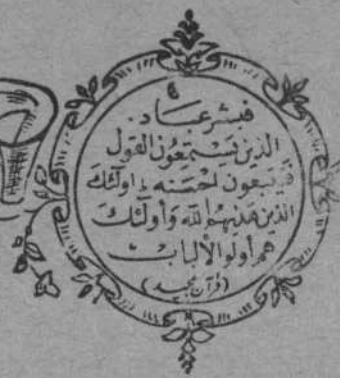 فبشر عباد
الذین یستمعون القول
فیتبعون احسنه اولئك
الذین هدیهم الله و اولئك
هم اولوا الألباب
(قرآن مجید)